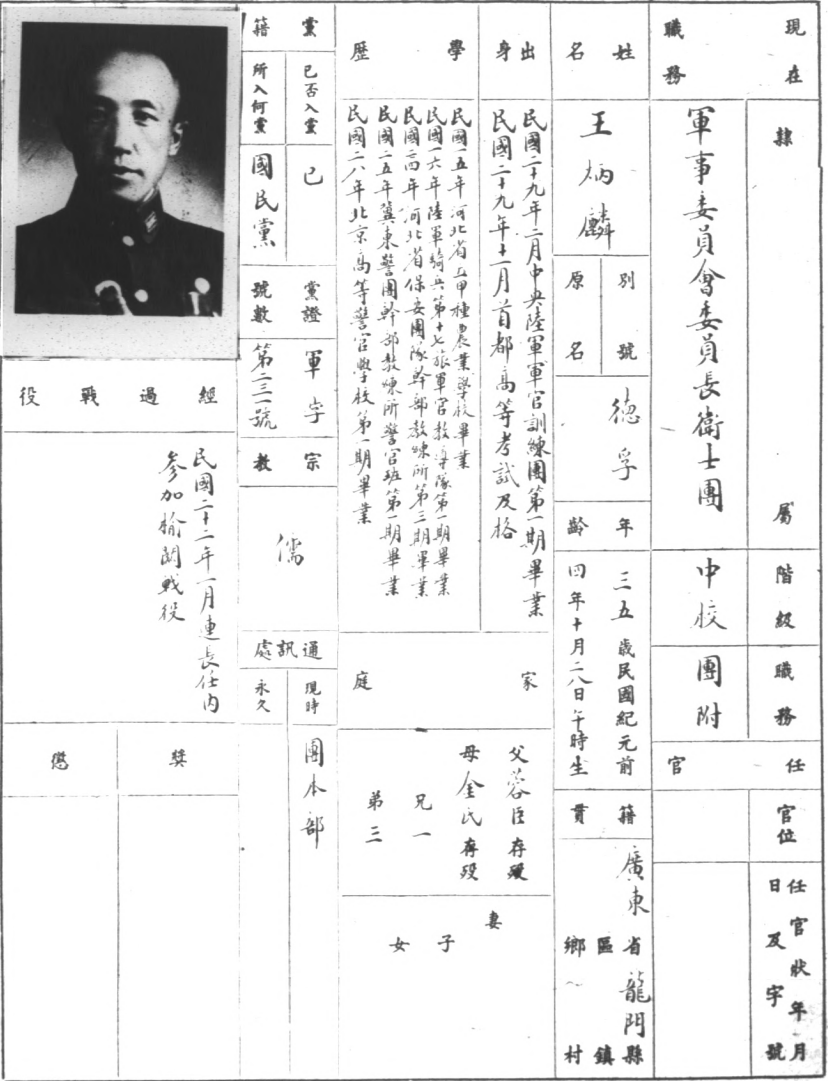 現在職務
隸屬
軍事委員會委員長衛士團
階級
中校
職務
團附
任官
官位
任官狀年月日及字號
姓名
王炳麟
別號
原名
德孚
年齡
三五歲民國紀元前
四年十月二八日午時生
籍貫
廣東省龍門縣
區鎮
鄉村
出身
民國二十九年二月中央陸軍軍官訓練團第一期畢業
民國二十九年十一月首都高等考試及格
學歷
民國一五年河北省立甲種農業學校畢業
民國一六年陸軍騎兵第十七旅軍官教導隊第一期畢業
民國二四年河北省保安團隊幹部教練所第三期畢業
民國二五年冀東警團幹部教練所警官班第一期畢業
民國二八年北京高等警官學校第一期畢業
家庭
父蓉臣存歿
母金氏存歿
兄一
弟三
妻
子
女
黨籍
已否入黨
所入何黨
已
國民黨
黨證號數
軍字
第二三一號
宗教
儒
通訊處
現時
永久
團本部
經過戰役
民國二十二年一月連長任內
參加榆關戰役
獎
懲